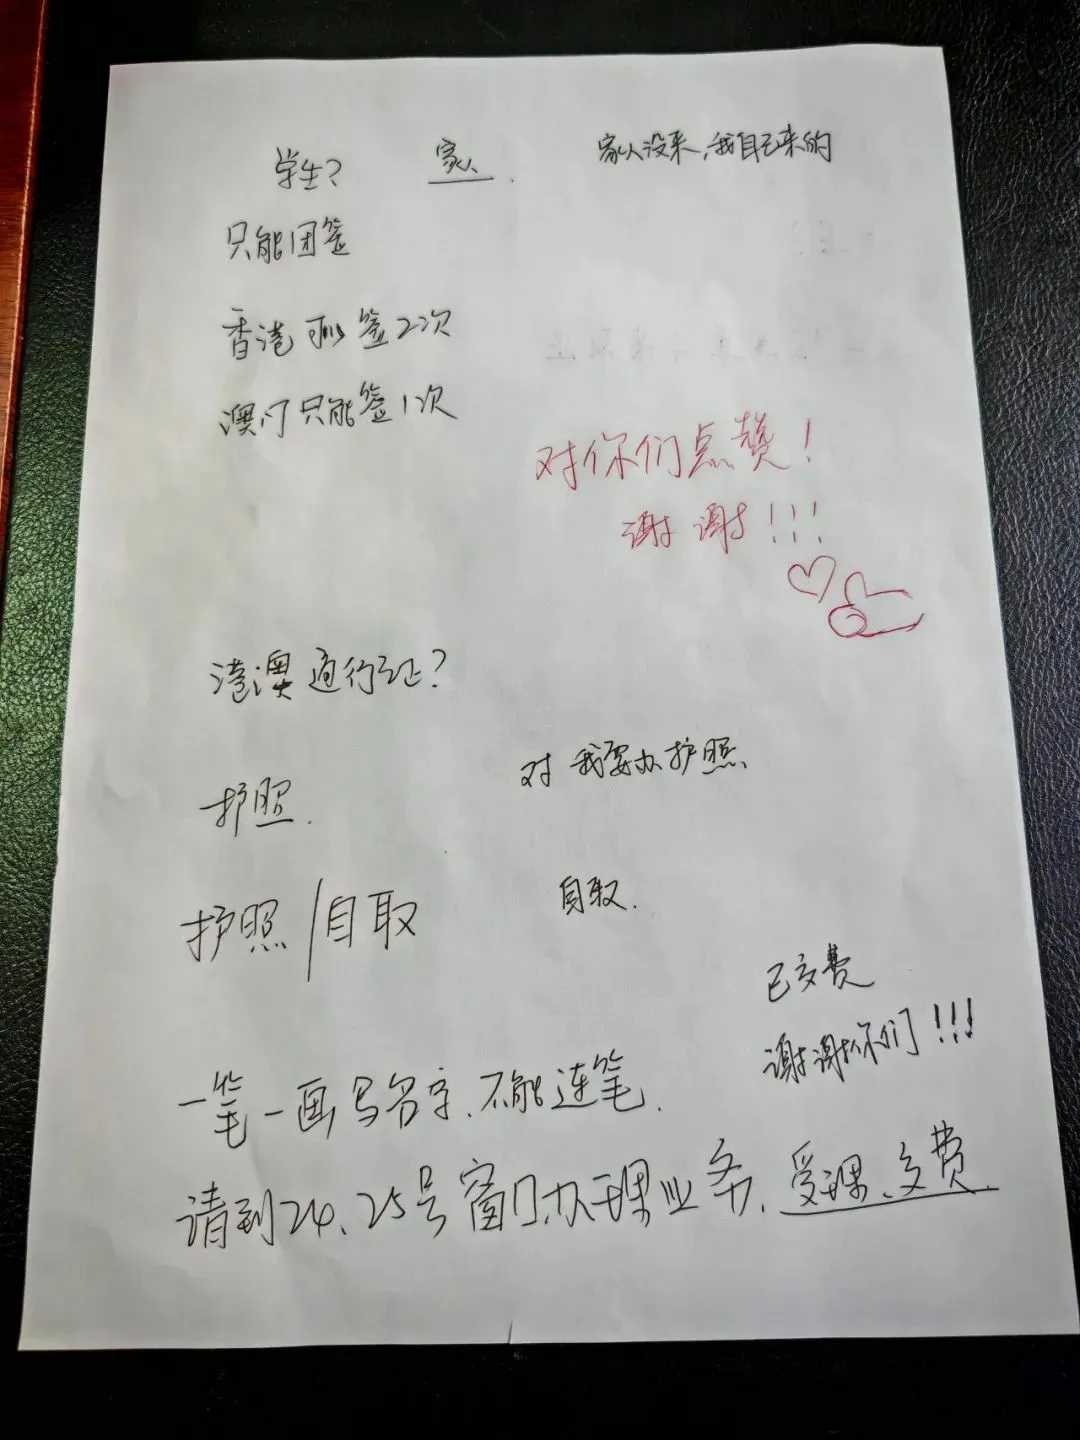 学生？ 家人 家人没来，我自己来的
只能团签
香港可以签2次
澳门只能签1次
对你们点赞！
谢谢！！！
港澳通行证？
护照.
对 我要办护照
护照/自取
自取.
已交费
谢谢你们！！！
一笔一画写名字.不能连笔.
请到24、25号窗口办理业务.受理、交费.